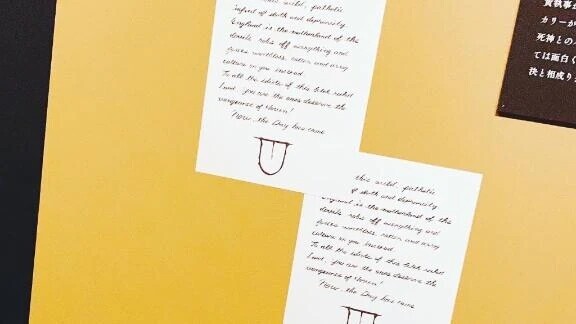 this wild, pathetic
infant of sloth and depravity.
England is the motherland of the
devils, robs off everything and
gives worthless, rotten and
culture in you instead.
To all the idiots of this
Land, you are the ones deserve the
vengeance of
Now, the Day has come
this wild, pathetic
of sloth and depravity.
England is the motherland of the
devils, robs off everything and
gives worthless, rotten and
culture in you instead.
To all the idiots of this
Land, you are the ones deserve the
vengeance of
Now, the Day has come
黄執事
カリーが
死神との
ては面白く
決と相成り